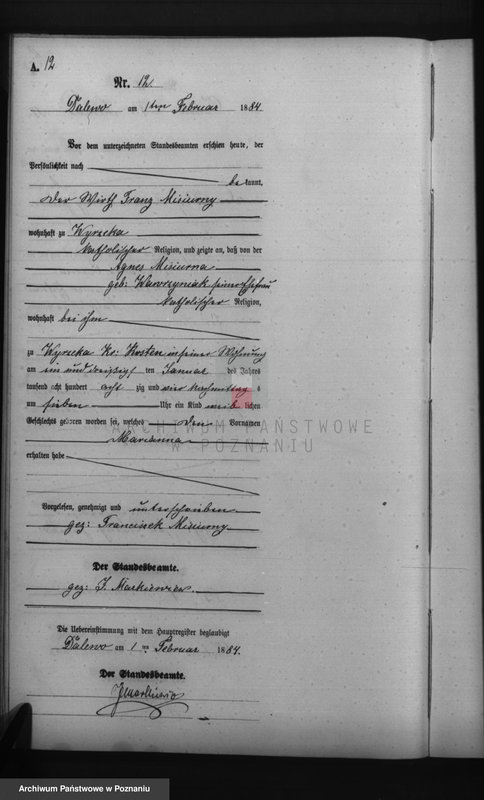 A. 12
Nr. 12
Dalewo am 1ten Februar 1884
Vor dem unterzeichneten Standesbeamten erschien heute, der
Persönlichkeit nach
be kannt,
der Wirth Franz Misiurny
wohnhaft zu Wyrzeka
katholischer Religion, und zeigte an, daß von der
Agnes Misiurna
geb: Wawrzyniak seiner Ehefrau
katholischer Religion,
wohnhaft bei ihm
zu Wyrzeka Kr: Kosten in seiner Wohnung
am ein und dreißigsten Januar des Jahres
tausend acht hundert achtzig und vier Nachmittags
um sieben Uhr ein Kind weiblichen
Geschlechts geboren worden sei, welches den Vornamen
Marianna
erhalten habe
Vorgelesen, genehmigt und unterschrieben
gez: Franciszek Misiurny
Der Standesbeamte.
gez: J. Markiewicz.
Die Uebereinstimmung mit dem Hauptregister beglaubigt
Dalewo am 1ten Februar 1884.
Der Standesbeamte.
JMarkiewicz
ARCHIWUM PAŃSTWOWE
W POZNANIU
Archiwum Państwowe w Poznaniu